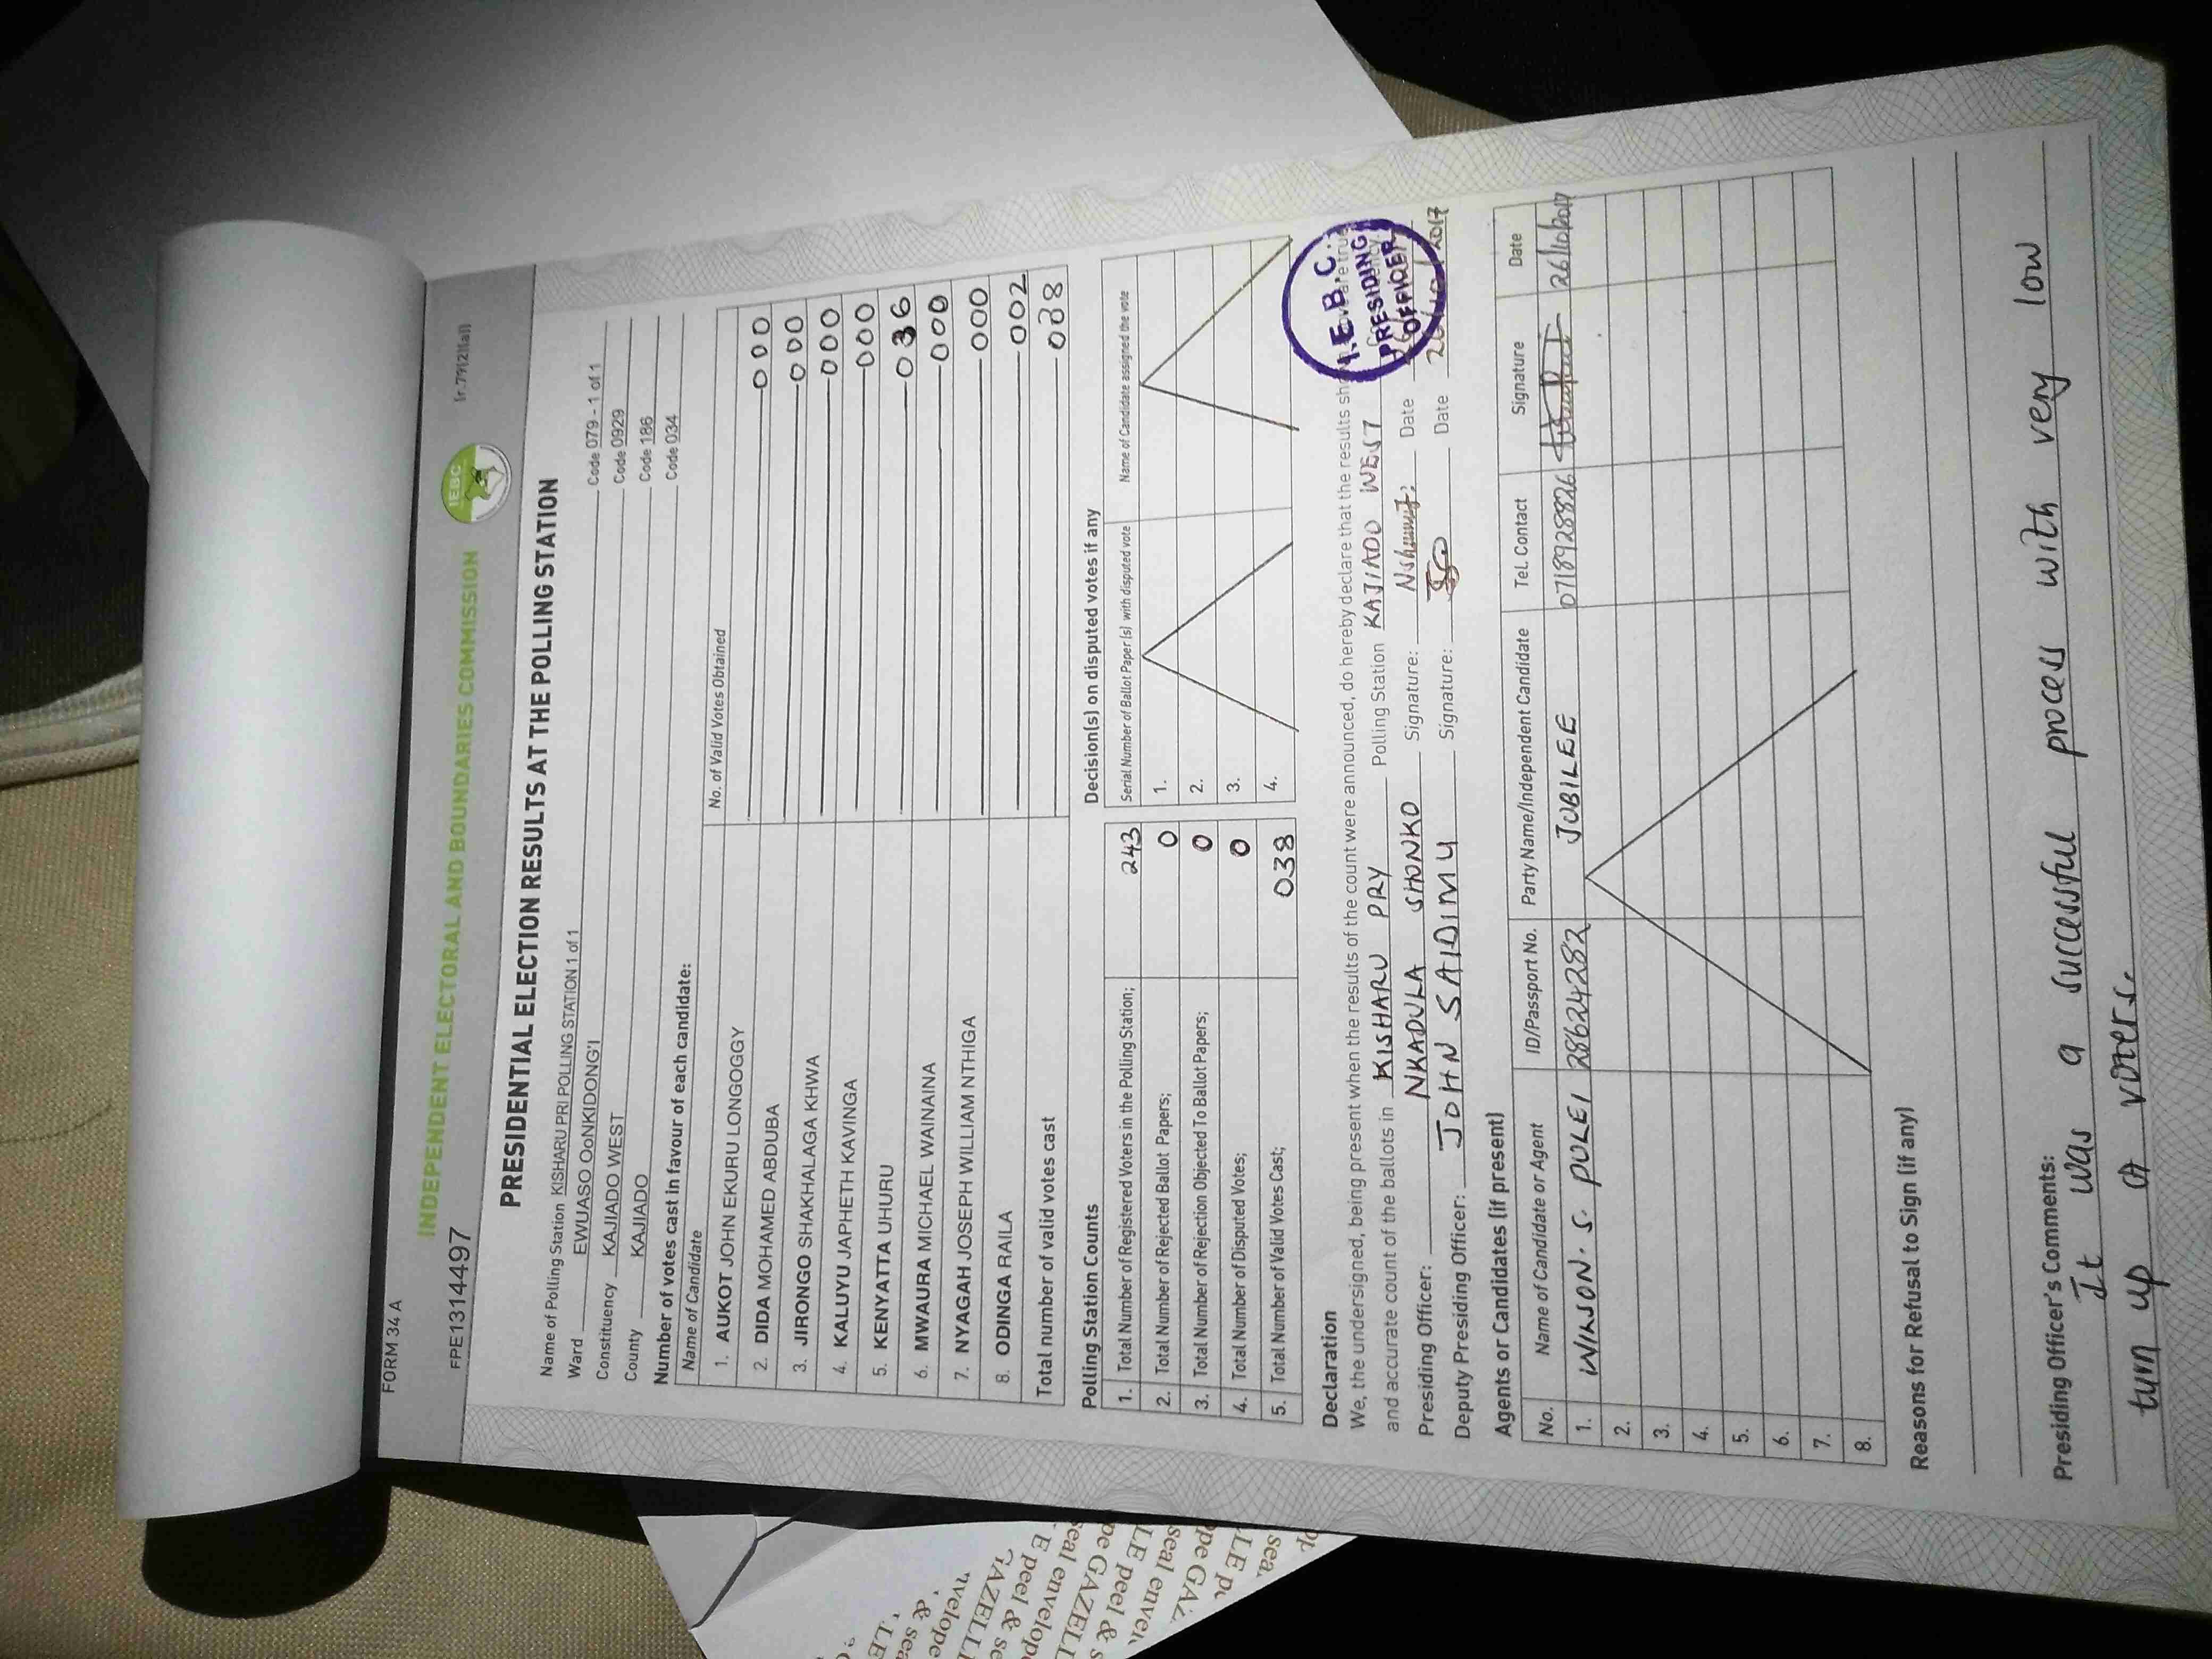 FORM 34 A
INDEPENDENT ELECTORAL AND BOUNDARIES COMMISSION
IEBC
FPE1314497
(r.79(2)(a))
PRESIDENTIAL ELECTION RESULTS AT THE POLLING STATION
Name of Polling Station KISHARU PRI POLLING STATION 1 of 1 Code 079 - 1 of 1
Ward EWUASO OoNKIDONG'I Code 0929
Constituency KAJIADO WEST Code 186
County KAJIADO Code 034
Number of votes cast in favour of each candidate:
Name of Candidate No. of Valid Votes Obtained
1. AUKOT JOHN EKURU LONGOGGY 000
2. DIDA MOHAMED ABDUBA 000
3. JIRONGO SHAKHALAGA KHWA 000
4. KALUYU JAPHETH KAVINGA 000
5. KENYATTA UHURU 036
6. MWAURA MICHAEL WAINAINA 000
7. NYAGAH JOSEPH WILLIAM NTHIGA 000
8. ODINGA RAILA 002
Total number of valid votes cast 038
Polling Station Counts
1. Total Number of Registered Voters in the Polling Station; 243
2. Total Number of Rejected Ballot Papers; 0
3. Total Number of Rejection Objected To Ballot Papers; 0
4. Total Number of Disputed Votes; 0
5. Total Number of Valid Votes Cast; 038
Decision(s) on disputed votes if any
Serial Number of Ballot Paper (s) with disputed vote Name of Candidate assigned the vote
1.
2.
3.
4.
Declaration
We, the undersigned, being present when the results of the count were announced, do hereby declare that the results
and accurate count of the ballots in KISHARU PRY Polling Station KAJIADO WEST
Presiding Officer: NKADULA SHONKO Signature: Date
Deputy Presiding Officer: JOHN SAIDIMU Signature: Date 26/10/2017
I.E.B.C.
PRESIDING
OFFICER
Agents or Candidates (if present)
No. Name of Candidate or Agent ID/Passport No. Party Name/Independent Candidate Tel. Contact Signature Date
1. WINSON. S. PULEI 28624282 JUBILEE 0718928826 26/10/2017
2.
3.
4.
5.
6.
7.
8.
Reasons for Refusal to Sign (if any)
Presiding Officer's Comments:
It was a successful process with very low
turn up of voters.
GAZELLE
peel &
seal envelope